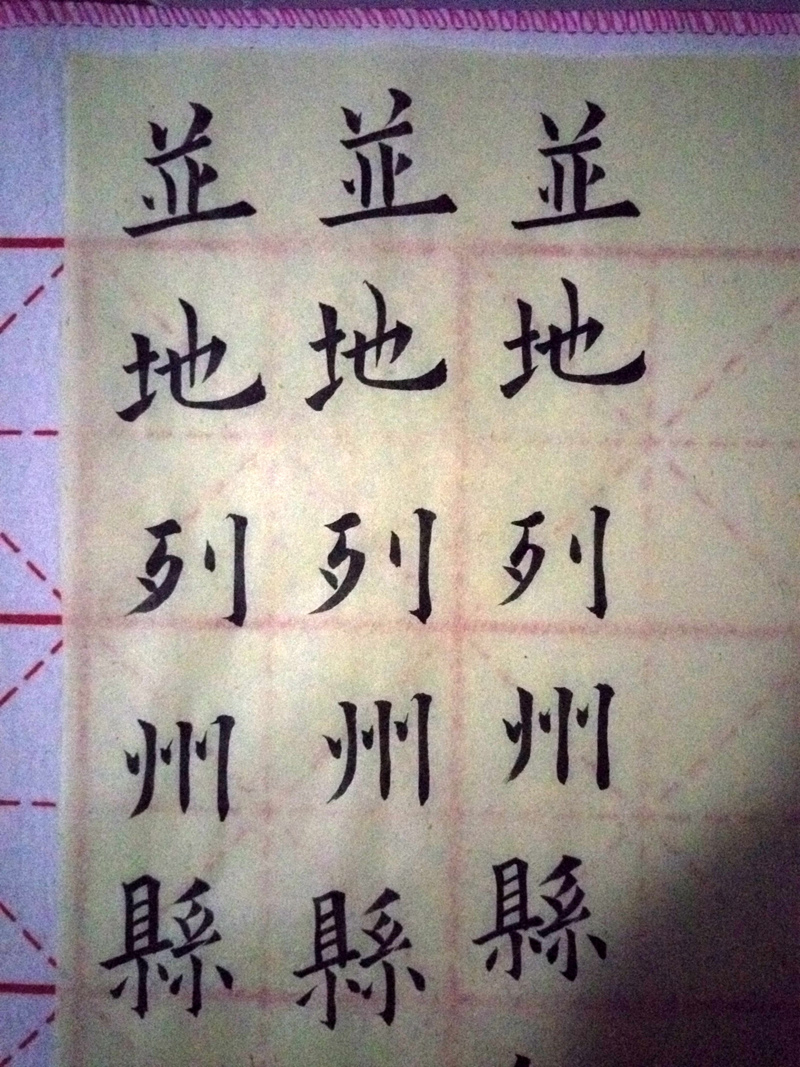 並地列州縣
並地列州縣
並地列州縣